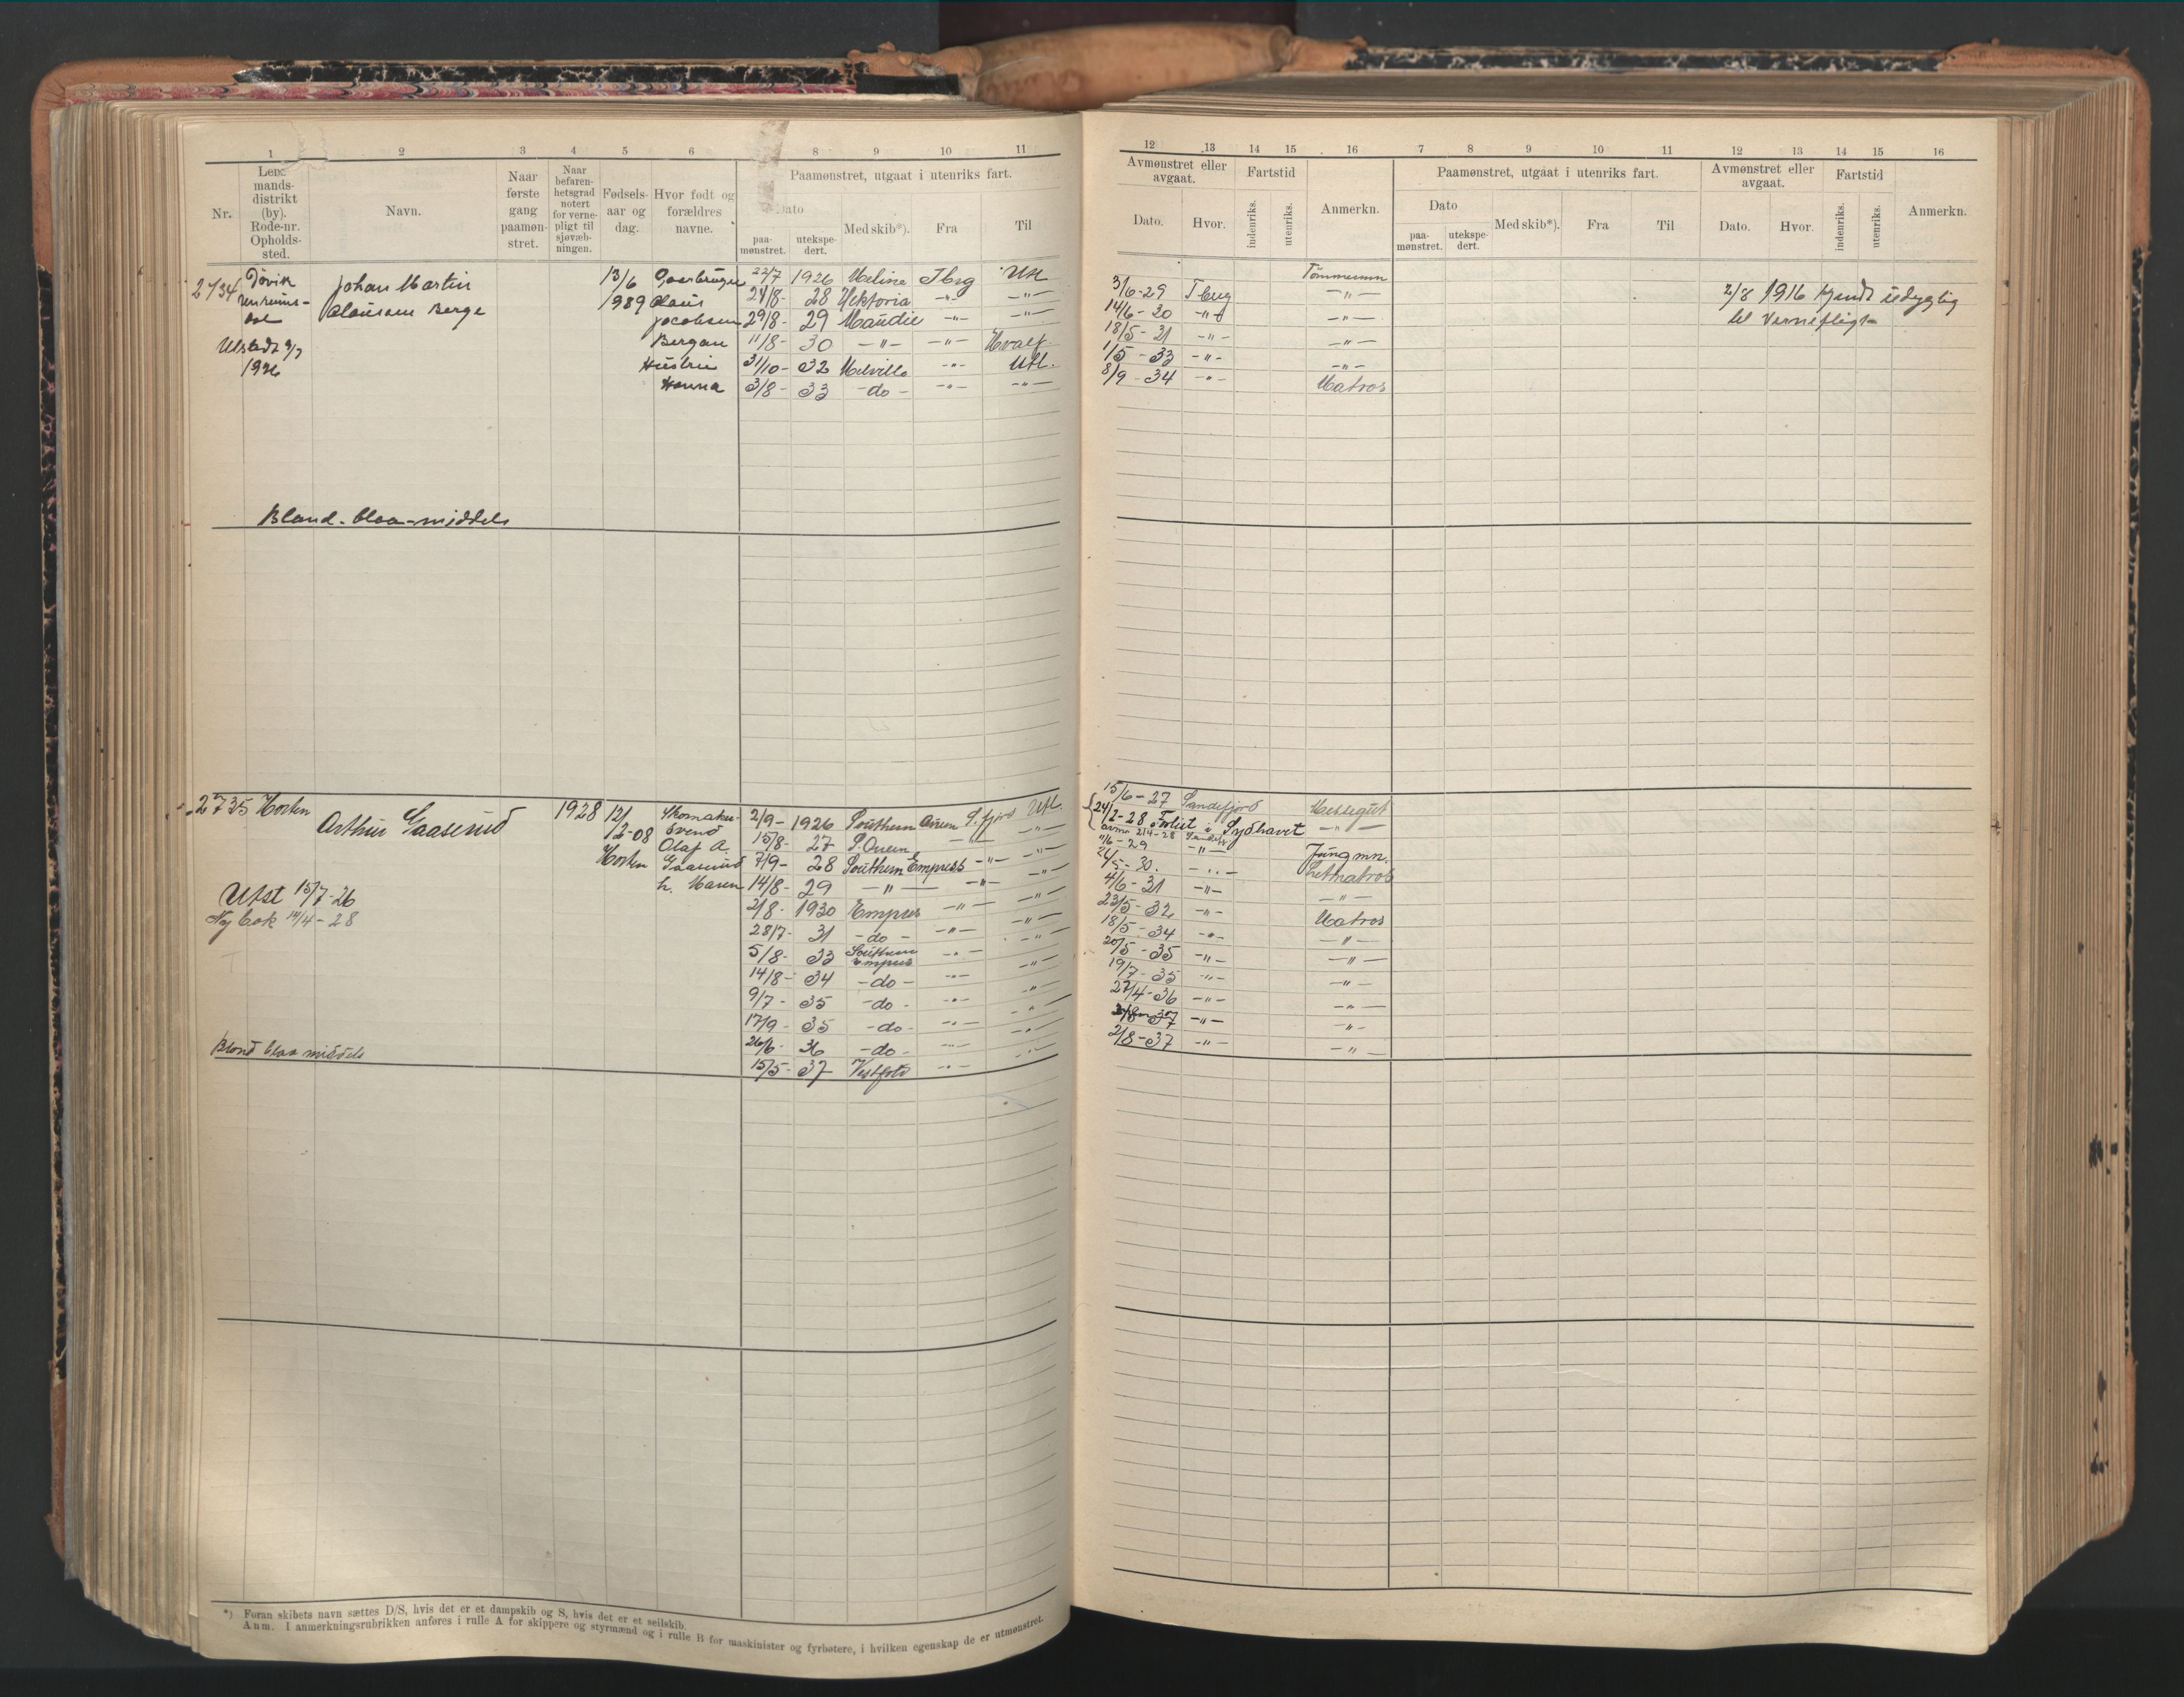 1 2 3 4 5 6 8 9 10 11
Nr.
Lens-
mands-
distrikt
(by).
Rode-nr.
Opholds-
sted.
Navn.
Naar
første
gang
paamøn-
stret.
Naar
befaren-
hetsgrad
notert
for verne-
pligt til
sjøvæb-
ningen.
Fødsels-
aar og
dag.
Hvor født og
forældres
navne.
Paamønstret, utgaat i utenriks fart.
Dato
paa-
mønstret.
utekspe-
dert.
Med skib*).
Fra
Til
12 13 14 15 16 7 8 9 10 11 12 13 14 15 16
Avmønstret eller
avgaat.
Dato.
Hvor.
Fartstid
indenriks.
utenriks.
Anmerkn.
Paamønstret, utgaat i utenriks fart.
Dato
paa-
mønstret.
utekspe-
dert.
Med skib*).
Fra
Til
Avmønstret eller
avgaat.
Dato.
Hvor.
Fartstid
indenriks.
utenriks.
Anmerkn.
2734
Johan Martin
Olausen Berge
Utstedt 9/7
1926
13/6
1989
Gaarbruger
Olaus
Jacobsen
Bergan
Hustru
Hanna
22/7 1926 Meline Tbrg Utl
24/8- 28 Hektoria -"- -"-
29/8- 29 Maudie -"- -"-
11/8- 30 -"- -"- Hvalf.
31/10- 32 Melville -"- Utl.
3/8- 33 -do- -"- -"-
Tømmermn
3/6-29 Tberg -"-
14/6-30 -"- -"-
18/5-31 -"- -"-
1/5-33 -"- -"-
8/9-34 -"- Matros
2/8 1916 kjendt udygtig
til Vernepligt
Blond-blaa-middels
2735 Horten
Arthur Gaaserud
1928
12/
12-08
Horten
Skomaker
Svend
Olaf A.
Gaaserud
h. Maren
Utst 15/7-26
Ny bok 14/4-28
2/9- 1926 Southern Queen S.fjord Utl.
15/8- 27 S. Queen -"- -"-
7/9- 28 Southern Empress -"- -"-
14/8- 29 -"- -"- -"-
2/8- 1930 Empress -"- -"-
28/7- 31 -do- -"- -"-
5/8- 33 Southern
Empress -"- -"-
14/8- 34 -do- -"- -"-
9/7- 35 -do- -"- -"-
17/9- 35 -do- -"- -"-
26/6- 36 -do- -"- -"-
15/5- 37 Vestfold -"- -"-
15/6-27 Sandefjord Messegut
24/2-28 Forlist i Sydhavet -"-
avm. 21/4-28 Sandefj.
11/6-29 -"- Jungmn.
24/5-30. -"- Letmatros
4/6-31 -"- -"-
23/5-32 -"- Matros
18/5-34 -"- -"-
20/5-35 -"- -"-
19/7-35 -"- -"-
27/4-36 -"- -"-
37 -"- -"-
2/8-37 -"- -"-
Blond blaa middels
*) Foran skibets navn sættes D/S, hvis det er et dampskib og S, hvis det er et seilskib.
Anm. I anmerkningsrubrikken anføres i rulle A for skippere og styrmænd og i rulle B for maskinister og fyrbøtere, i hvilken egenskap de er utmønstret.